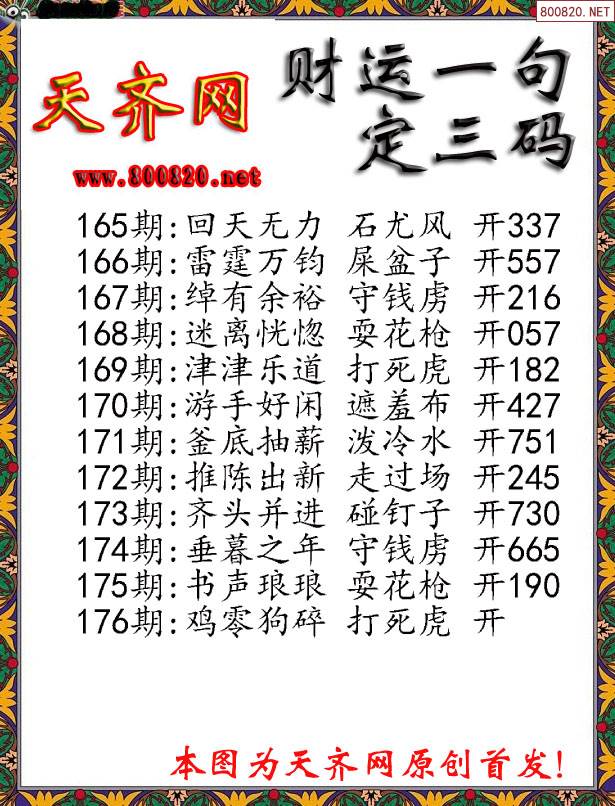 800820.NET
天齐网
财运一句
定三码
www.800820.net
165期:回天无力 石尤风 开337
166期:雷霆万钧 屎盆子 开557
167期:绰有余裕 守钱虏 开216
168期:迷离恍惚 耍花枪 开057
169期:津津乐道 打死虎 开182
170期:游手好闲 遮羞布 开427
171期:釜底抽薪 泼冷水 开751
172期:推陈出新 走过场 开245
173期:齐头并进 碰钉子 开730
174期:垂暮之年 守钱虏 开665
175期:书声琅琅 耍花枪 开190
176期:鸡零狗碎 打死虎 开
本图为天齐网原创首发!